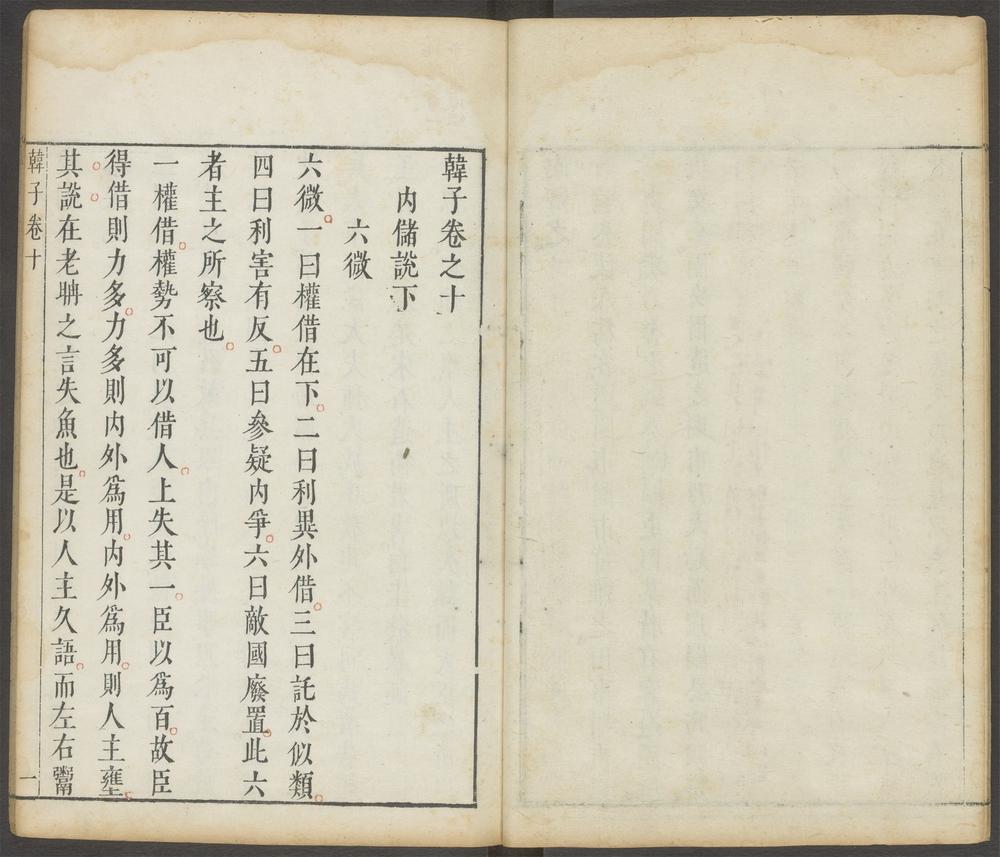 韓子卷之十
内儲說下
六微
六微一曰權借在下二曰利異外借三曰託於似類
四曰利害有反五曰參疑内爭六曰敵國廢置此六
者主之所察也
一權借權勢不可以借人上失其一臣以爲百故臣
得借則力多力多則内外爲用内外爲用則人主壅
其說在老聃之言失魚也是以人主久語而左右鬻
韓子卷十
一